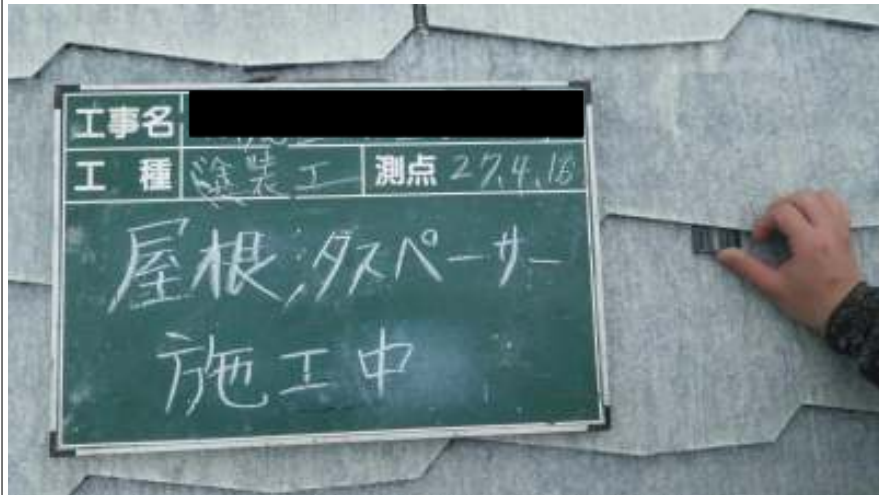 工事名
工種 塗装工 測点 27.4.18
屋根,タスペーサー
施工中